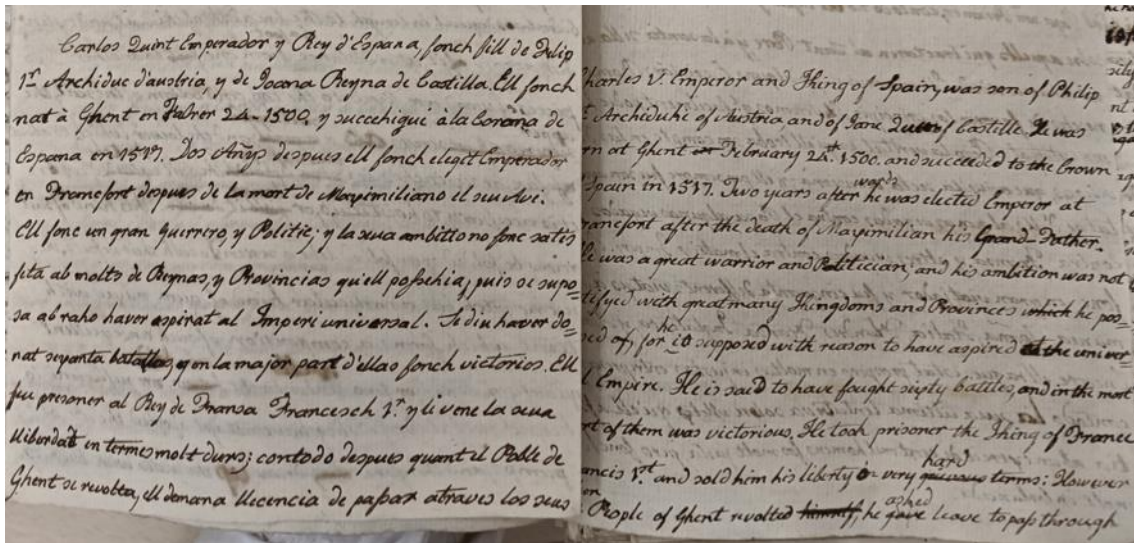 Carlos Quint Emperador y Rey d'Espana, fonch fill de Felip
1.r Archiduc d'austria, y de Joana Reyna de Castilla. Ell fonch
nat à Ghent en Febrer 24 - 1500, y succehigué à la Corona de
Espana en 1517. Dos Añys despues ell fonch elegit Emperador
en Francfort despues de la mort de Maximiliano el seu Avi.
Ell fonc un gran Guerrero, y Politic; y la sua ambitto no fonc satis
feta ab molts de Reynas, y Provincias qu'ell possehia, puis se supo=
sa ab raho haver aspirat al Imperi universal. Se diu haver do=
nat sexanta batallas, y en la major part d'ellas fonch victorios. Ell
feu presoner al Rey de Fransa Francesch 1.r y li vene la sua
llibertat en termes molt durs; contodo despues quant el Poble de
Ghent se revolta, ell demana llecencia de passar atraves los seus
harles V. Emperor and Khing of Spain, was son of Philip
t Archiduke of Austria, and of Jane Queen of Castille. He was
rn at Ghent in February 24th. 1500. and succeeded to the Crown
Spain in 1517. Two years after wards he was elected Emperor at
rancfort after the death of Maximilian his Grand-Father.
e was a great warrior and Politician, and his ambition was not
tisfyed with great many Khingdoms and Provinces which he pos=
sed of, for he is supposed with reason to have aspired at the univer
l Empire. He is said to have fought sixty battles, and in the most
rt of them was victorious. He took prisoner the Khing of France
ancis 1.st and sold him his liberty on very hard terms: However
en People of Ghent revolted himself, he gave asked leave to pass through